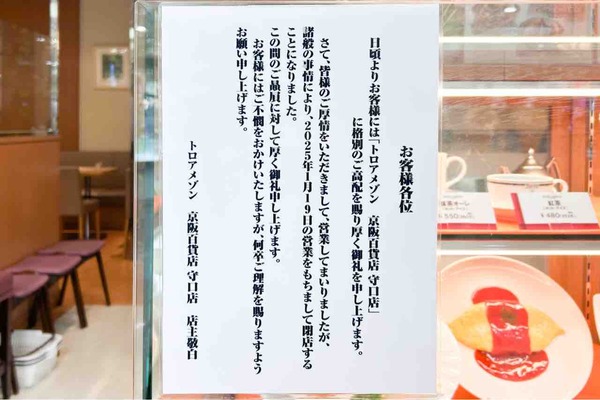 お客様各位
日頃よりお客様には「トロアメゾン 京阪百貨店 守口店」
に格別のご高配を賜り厚く御礼を申し上げます。
さて、皆様のご厚情をいただきまして、営業してまいりましたが、
諸般の事情により、2025年1月19日の営業をもちまして閉店する
ことになりました。
この間のご贔屓に対して厚く御礼申し上げます。
お客様にはご不憫をおかけいたしますが、何卒ご理解を賜りますよう
お願い申し上げます。
トロアメゾン 京阪百貨店 守口店 店主敬白
紅茶
¥480
¥550